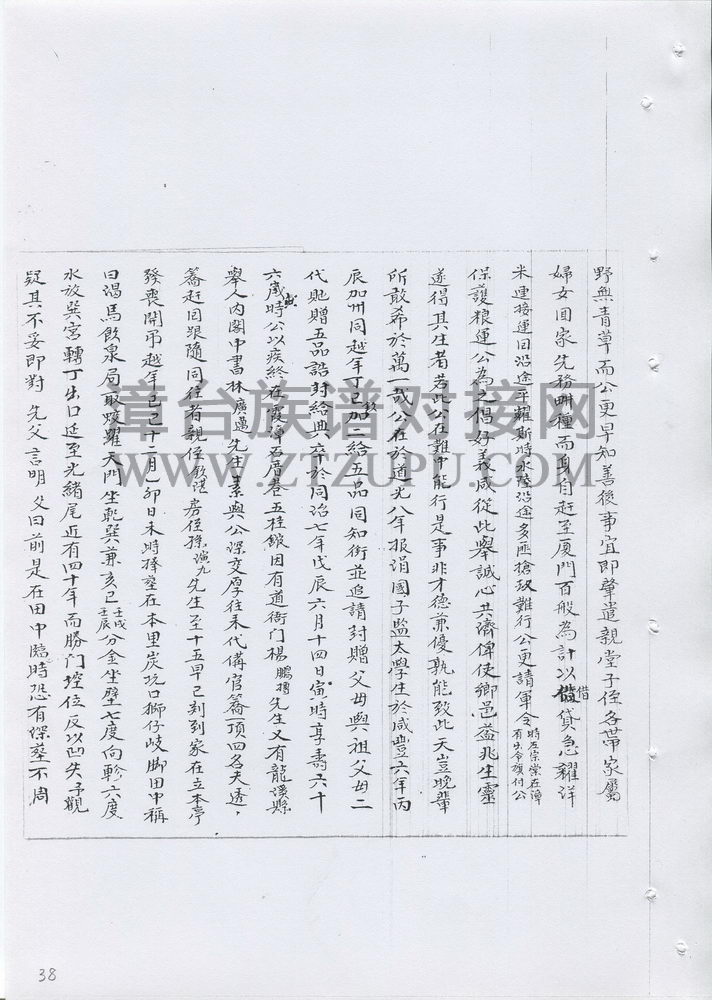 野無青草而公更早知善後事宜即肇遣親堂子侄各帶家屬
婦女回家先務畊種而身自赶至厦門百般為計以借貸急糴洋
米連接運回沿途平糶斯時水陸沿途多匪搶難行公更請軍令時左宗棠在漳有出令旗付公
保護粮運公為之倡好義咸從此舉誠心共濟俾使鄉邑益兆生靈
遂得其生者若此公在難中能行是事非才德兼優孰能致此天豈晚輩
所敢希於萬一哉公在於道光八年报捐國子監太學生於咸豐六年丙
辰加州同越年丁巳加二給五品同知銜並追請封贈父母與祖父母二
代馳贈五品誥封給典卒於同治七年戊辰六月十四日寅時享壽六十
六歲時公以疾終在霞漳石厝巷五桂舘因有道衙門楊鵬摶先生又有龍溪縣
舉人內閣中書林廣邁先生素與公深交厚往来代備官轎一頂四名夫透
轎赶回跟隨同往者親侄房侄孫演九先生至十五早已刻到家在立本亭
發喪開吊越年己巳十二月卯日未時捧塟在本里炭坑口獅仔岐脚田中稱
曰渴馬飲泉局取蛟躍天門坐乾巽兼亥巳壬戌壬辰分金坐壁七度向軫六度
水放巽宮轉丁出口延至光緒尾近有四十年而勝門控位反以凹失予觀
疑其不妥即對 先父言明父曰前是在田中臨時恐有傑塟不周
章台族谱对接网
WWW.ZTZUPU.COM
38